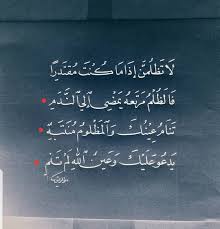 لَا تَظْلِمَنَّ إِذَا مَا كُنْتَ مُقْتَدِرًا
فَالظُّلْمُ مَرْتَعُهُ يَفْضِي إِلَى النَّدَمِ
تَنَامُ عَيْنُكَ وَالْمَظْلُومُ مُنْتَبِهٌ
يَدْعُو عَلَيْكَ وَعَيْنُ اللَّهِ لَمْ تَنَمِ